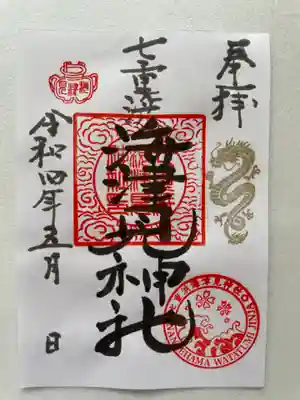 奉拝
七重濱
海津見神社
令和四年五月 日
NANAEHAMA WATATUMI JINJA